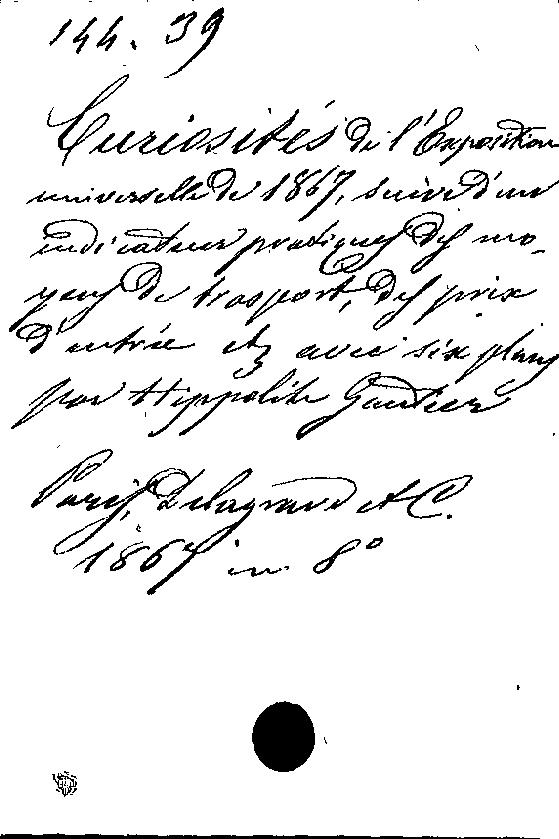 144. 39
Curiosités de l'Exposition
universelle de 1867, suivi d'un
indicateur pratiques des mo-
yens de trasport, des prix
d'entrée etz avec six plans
par Hippolite Gautier
Paris, Delagrave et C.
1867 in 8°